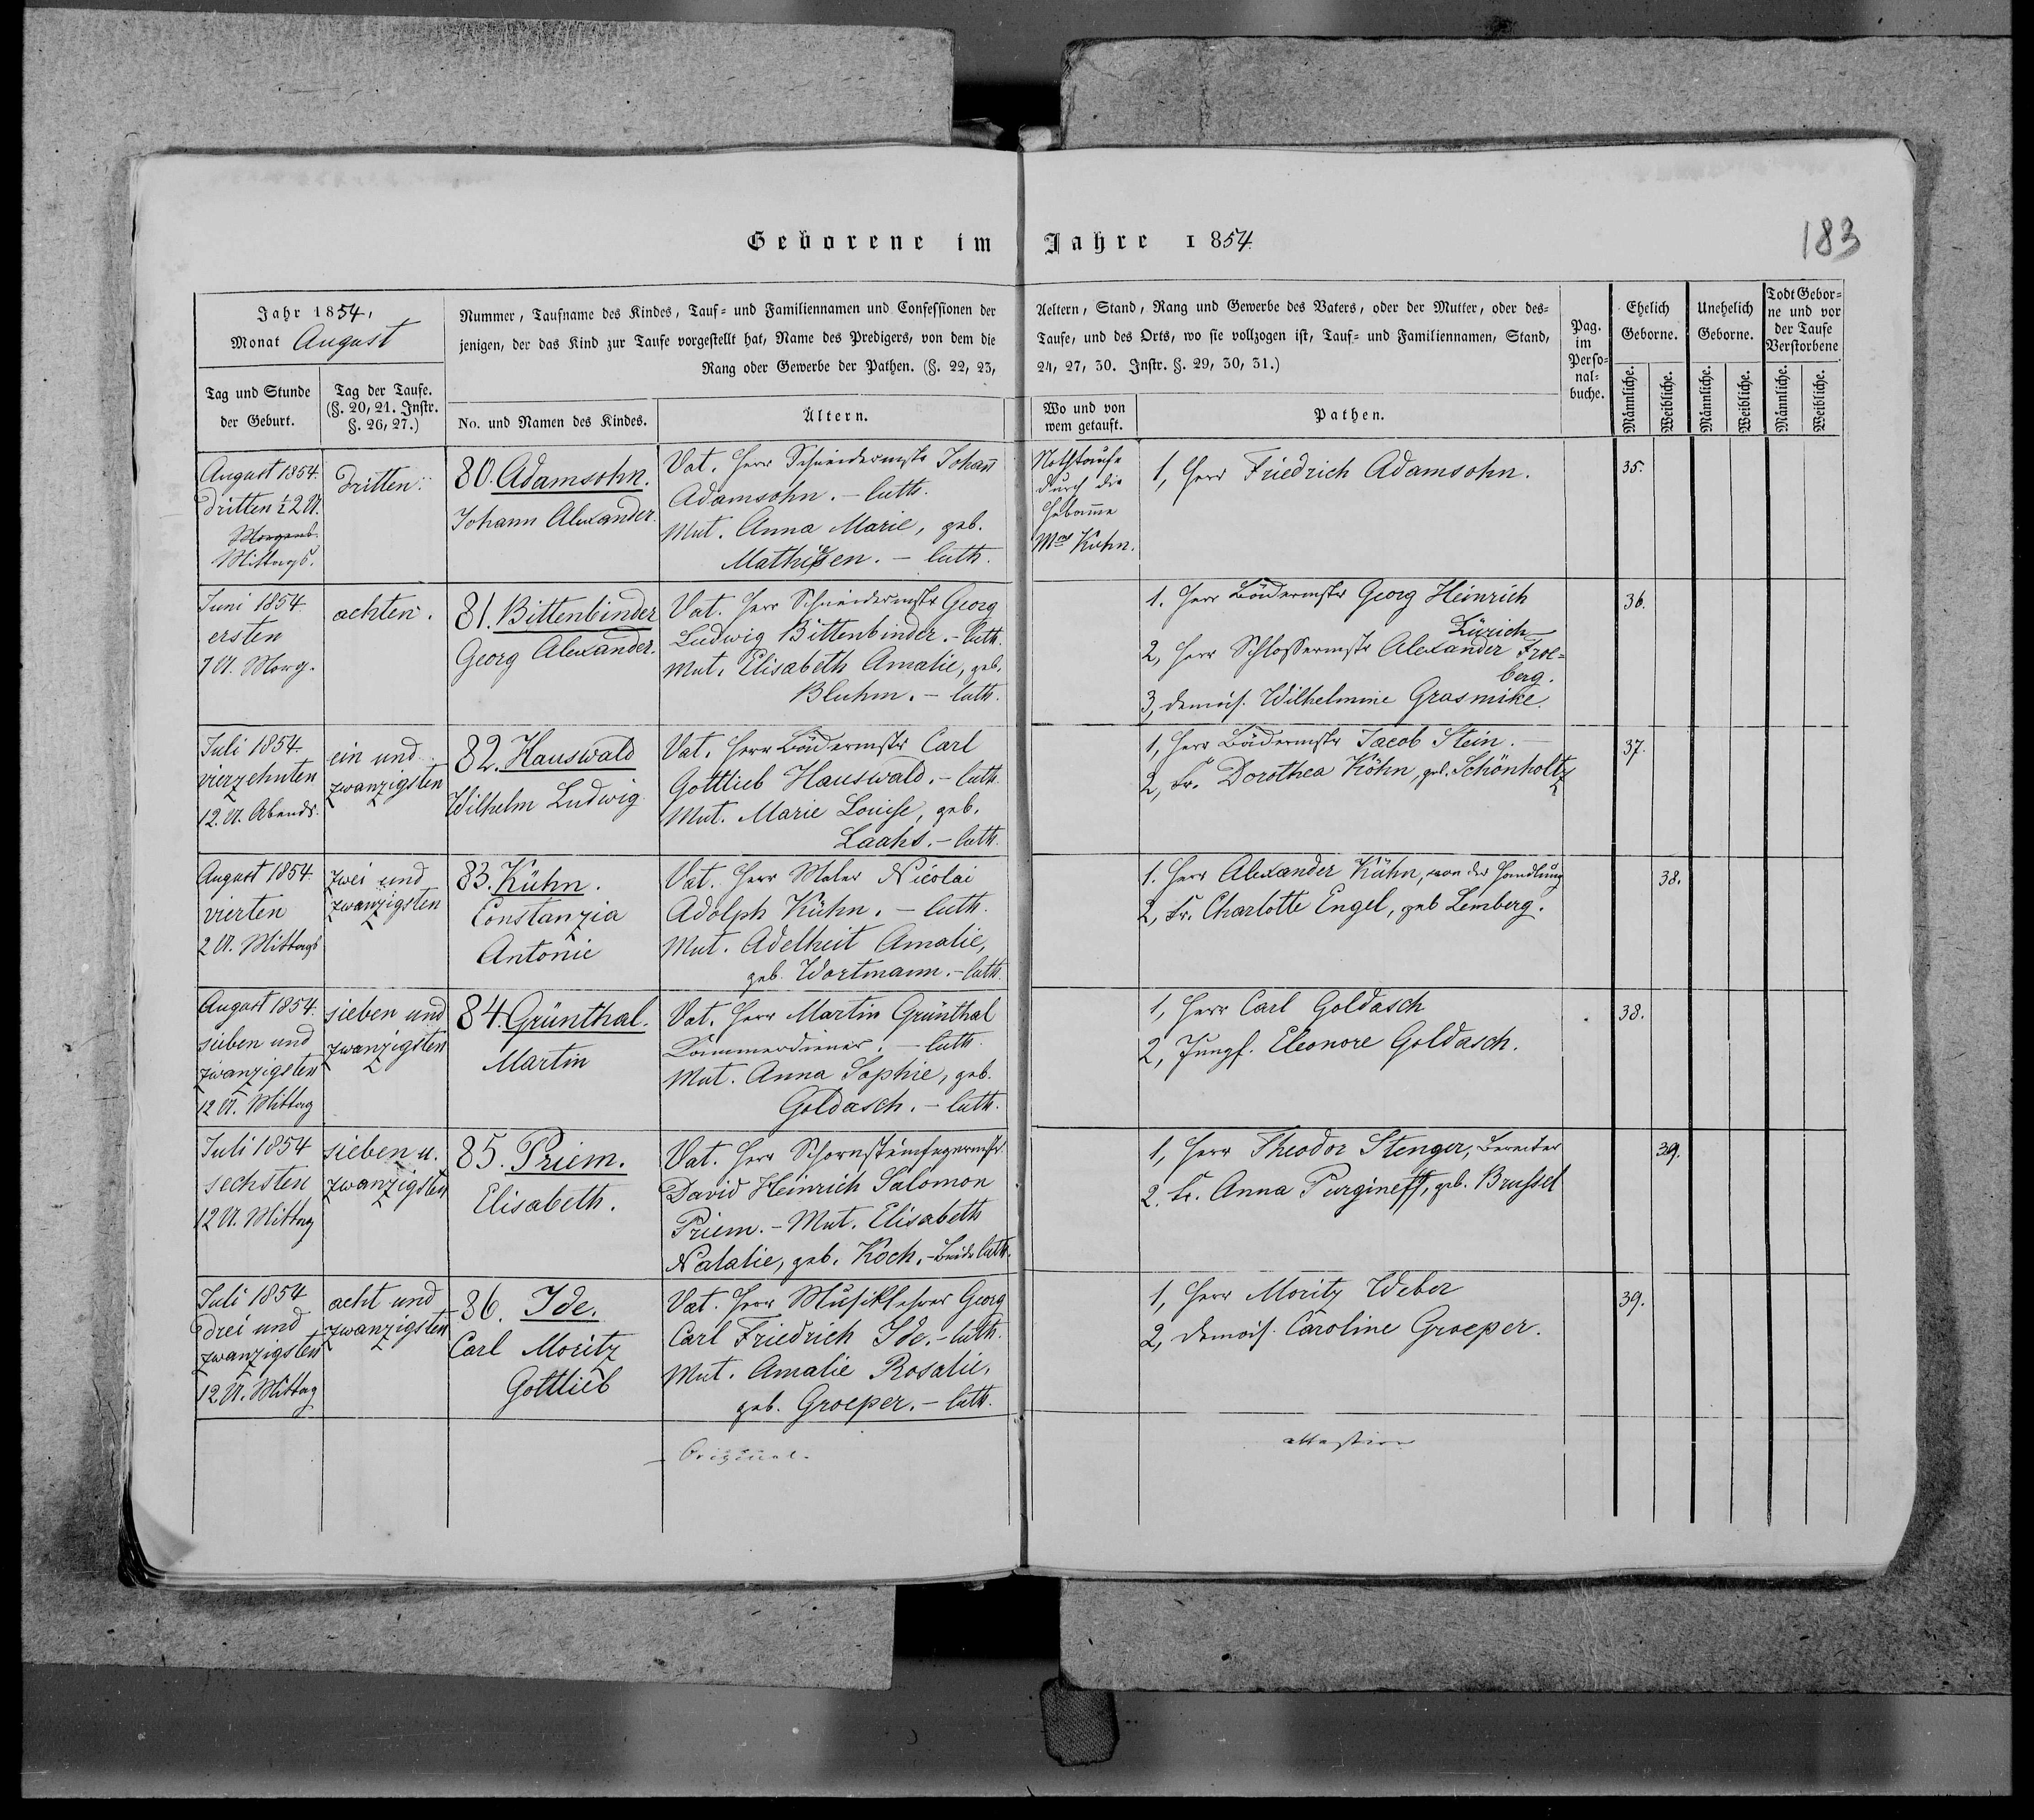 Geborene im Jahre 1854.
183
Jahr 1854,
Monat August
Tag und Stunde
der Geburt.
Tag der Taufe.
(§. 20, 21. Instr.
§. 26, 27.)
Nummer, Taufname des Kindes, Tauf- und Familiennamen und Confessionen der
jenigen, der das Kind zur Taufe vorgestellt hat, Name des Predigers, von dem die
Rang oder Gewerbe der Pathen. (§. 22, 23,
No. und Namen des Kindes.
Ältern.
Aeltern, Stand, Rang und Gewerbe des Vaters, oder der Mutter, oder des-
Taufe, und des Orts, wo sie vollzogen ist, Tauf- und Familiennamen, Stand,
24, 27, 30. Instr. §. 29, 30, 31.)
Wo und von
wem getauft.
Pathen.
Pag.
im
Perso-
nal-
buche.
Ehelich
Geborne.
Unehelich
Geborne.
Todt Gebor-
ne und vor
der Taufe
Verstorbene
Männliche.
Weibliche.
Männliche.
Weibliche.
Männliche.
Weibliche.
August 1854.
dritten ½2 U.
Morgens.
Mittags.
dritten.
80. Adamsohn.
Johann Alexander.
Vat. Herr Schneidermstr Johann
Adamsohn. – luth.
Mut. Anna Marie, geb.
Mathisen. – luth.
Nothtaufe
durch die
Hebamme
Kuhn.
1, Herr Friedrich Adamsohn.
35.
Juni 1854.
ersten
7 U. Morg.
achten.
81. Bittenbinder
Georg Alexander.
Vat. Herr Schneidermstr Georg
Ludwig Bittenbinder. – luth.
Mut. Elisabeth Amalie, geb.
Bluhm. – luth.
1. Herr Georg Heinrich
Lürich
2, Herr Schlossermstr Alexander Froe-
berg.
3, demois. Wilhelmine Grasmike.
36.
Juli 1854.
vierzehnten
12. U. Abends.
ein und
zwanzigsten
82. Hauswald
Wilhelm Ludwig
Vat. Herr Carl
Gottlieb Hauswald. – luth.
Mut. Marie Louise, geb.
Laahs. – luth.
1, Herr Jacob Stein. –
2, Fr. Dorothea Köhn, geb. Schönholtz
37.
August 1854.
vierten
2 U. Mittags
zwei und
zwanzigsten
83. Kühn.
Constanzia
Antonie
Vat. Herr Maler Nicolai
Adolph Kühn. – luth.
Mut. Adelheit Amalie,
geb. Wortmann. – luth.
1. Herr Alexander Kühn, von der Handlung
2, Fr. Charlotte Engel, geb Lemberg.
38.
August 1854.
sieben und
zwanzigsten
12 U. Mittag
sieben und
zwanzigsten
84. Grünthal.
Martin
Vat. Herr Martin Grünthal
Kammerdiener. – luth.
Mut. Anna Sophie, geb.
Goldasch. – luth.
1, Herr Carl Goldasch
2, Jungf. Eleonore Goldasch.
38.
Juli 1854
sechsten
12 U. Mittag
sieben u.
zwanzigsten
85. Priem.
Elisabeth.
Vat. Herr Schornsteinfegermstr
David Heinrich Salomon
Priem. – Mut. Elisabeth
Natalie, geb. Koch. – beide luth.
1, Herr Theodor Stenger, Bereiter
2. Fr. Anna Purgineff, geb. Brussel
39.
Juli 1854
drei und
zwanzigsten
12 U. Mittag
acht und
zwanzigsten
86. Ide.
Carl Moritz
Gottlieb
Vat. Herr Musiklehrer Georg
Carl Friedrich Ide. – luth.
Mut. Amalie Rosalie,
geb. Groeper. – luth.
1, Herr Moritz Weber
2, demois. Caroline Groeper.
39.
Original.